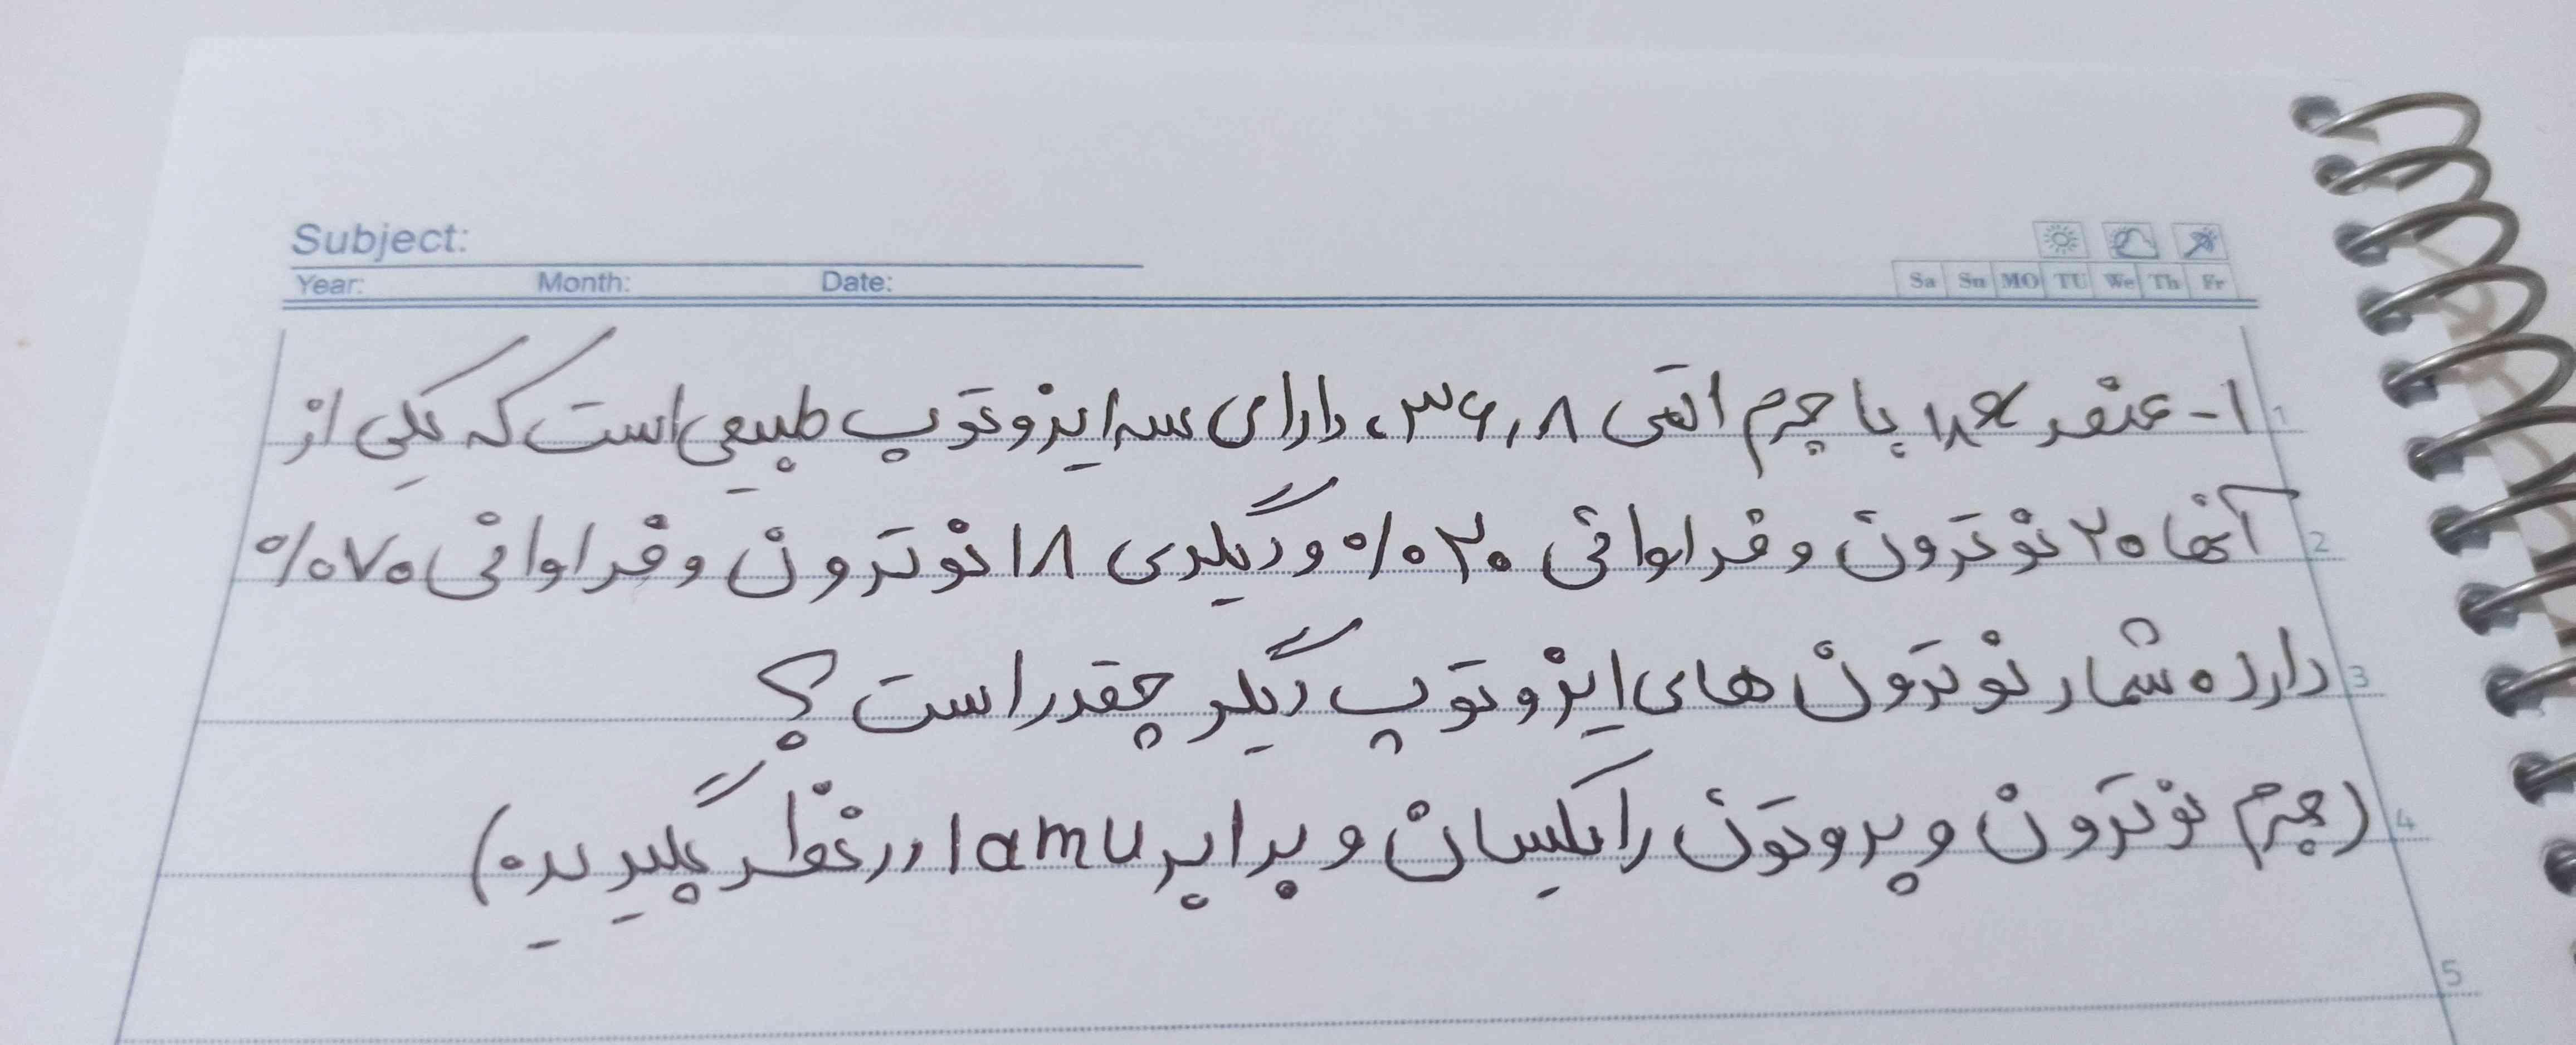 Subject:
Year: Month: Date:
Sa Su MO TU We Th Fr
۱- عنصر ₁₈X با جرم اتمی ۳۶٫۸، دارای سه ایزوتوپ طبیعی است که یکی از
آنها ۲۰ نوترون و فراوانی ۲۰٪ و دیگری ۱۸ نوترون و فراوانی ۷۰٪
دارد. شمار نوترون های ایزوتوپ دیگر چقدر است؟
(جرم نوترون و پروتون را یکسان و برابر ۱amu در نظر بگیرید.)
1
2
3
4
5